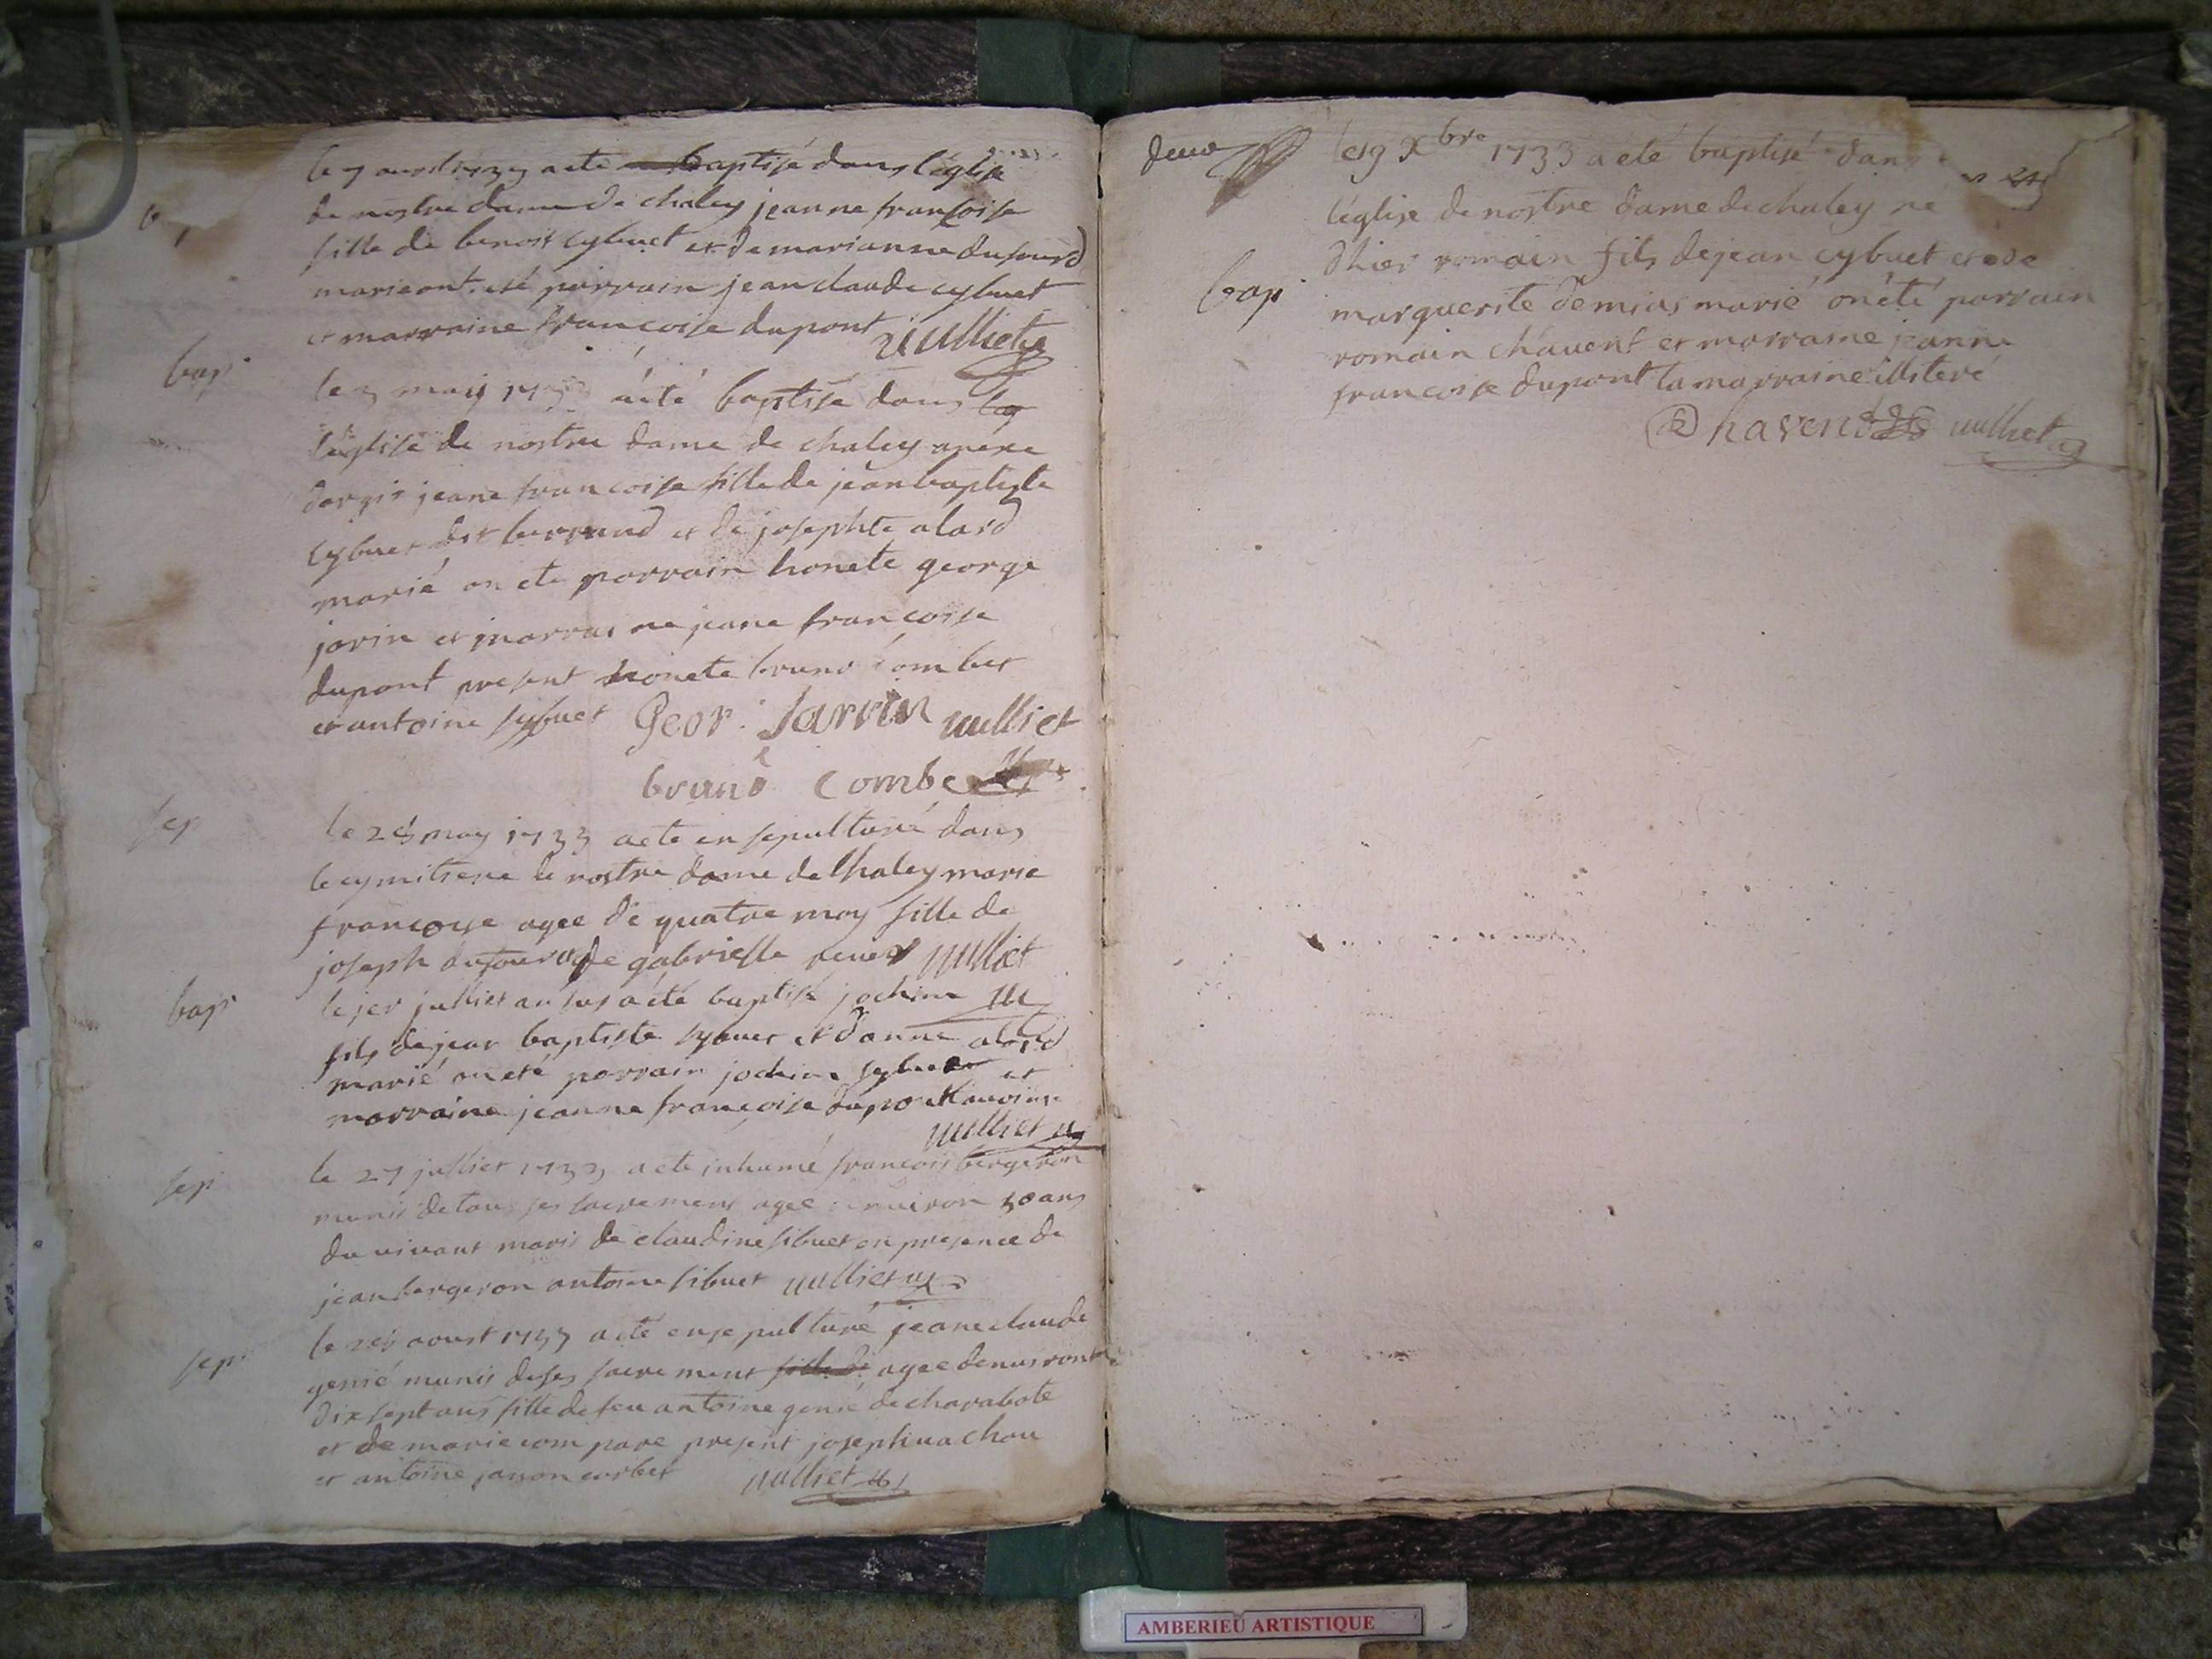 bap
le 7 avril 1733 a ete baptisé dans l'église
de nostre dame de chaley jeanne francoise
fille de benoit cybuet et de marianne dufourd
marie ont eté parrain jean claude cybuet
et marraine francoise dupont vulliet
bap
le 3 may 1733 a eté baptisé dans
l'église de nostre dame de chaley anexe
dargis jeane francoise fille de jean baptiste
cybuet dit berrand et de josephte alard
marié on ete parrain honete george
jarin et marrai ne jeane francoise
dupont present honete bruno combet
et antoine sybuet Geor. Jarrin vulliet
bruno combe
sep
le may 1733 a ete ensepulturé dans
le cymitiere de nostre dame de Chaley marie
francoise agee de quatre moy fille de
joseph dufour de gabrielle vulliet
bap
le jer julliet an sus a été baptisé jochim
fils de jean baptiste sybuet et danne alard
marié on eté parrain jochim sybuet et
marraine jeanne françoise dupont
vulliet
sep
le 27 julliet 1733 a ete inhumé francois bergeron
munis de tous ses sacremens agee environ 50 ans
du vivant maris de claudine sibuet en presence de
jean bergeron antoine sibuet vulliet
sep
le aoust 1733 a eté ensepulturé jeane claude
genié munis de ses sacrement fille de agee denviron
dix sept ans fille de feu antoine genié de charabote
et de marie compare present joseph vachou
et antoine janon corbet vulliet
le 19 Xbre 1733 a eté baptisé dans
l'église de nostre dame de chaley ne
bap
dhier romain fils de jean cybuet et de
marguerite demias marié on été parrain
romain chavent et marraine jeanne
francoise dupont la marraine illiteré
Chavent vulliet
AMBERIEU ARTISTIQUE